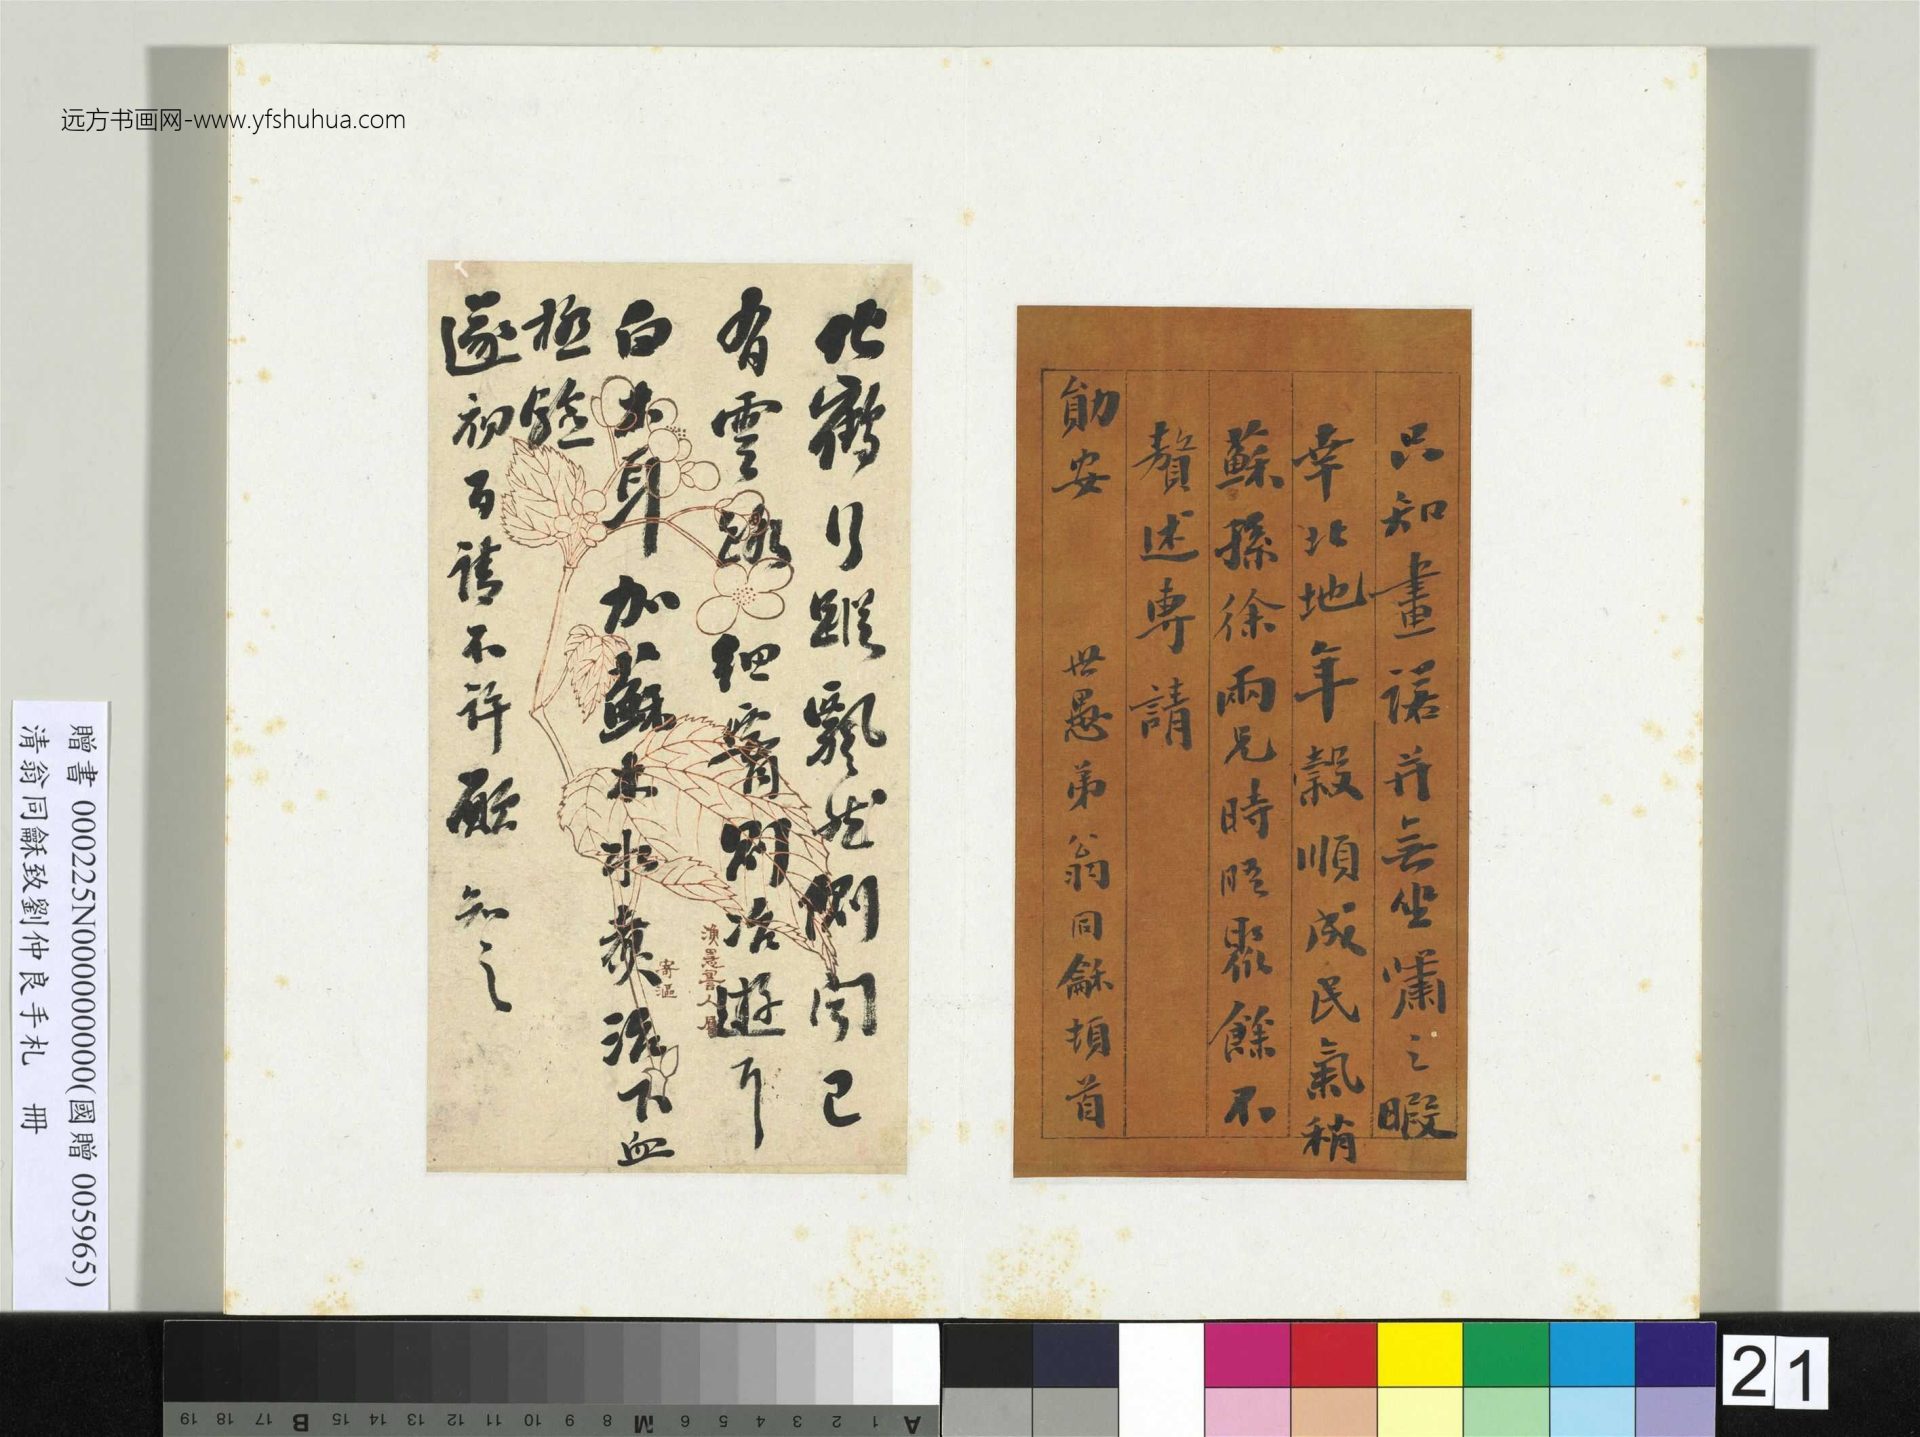 远方书画网-www.yfshuhua.com
只知畫諾并無坐嘯之暇
幸北地年穀順成民氣稍
蘇孫徐兩兄時晤聚餘不
贅述專請
勛安
世愚弟翁同龢頓首
化鶴行蹤飄然側聞已
有雲路細審則冶遊耳
白木耳加蘇木水煮治下血
極驗
遂初百請不許
知之
漁
寄漚
贈書 000225N000000000(國贈 005965)
清翁同龢致劉仲良手札 冊
21
A 1 2 3 4 5 6 M 8 9 10 11 12 13 14 15 B 17 18 19